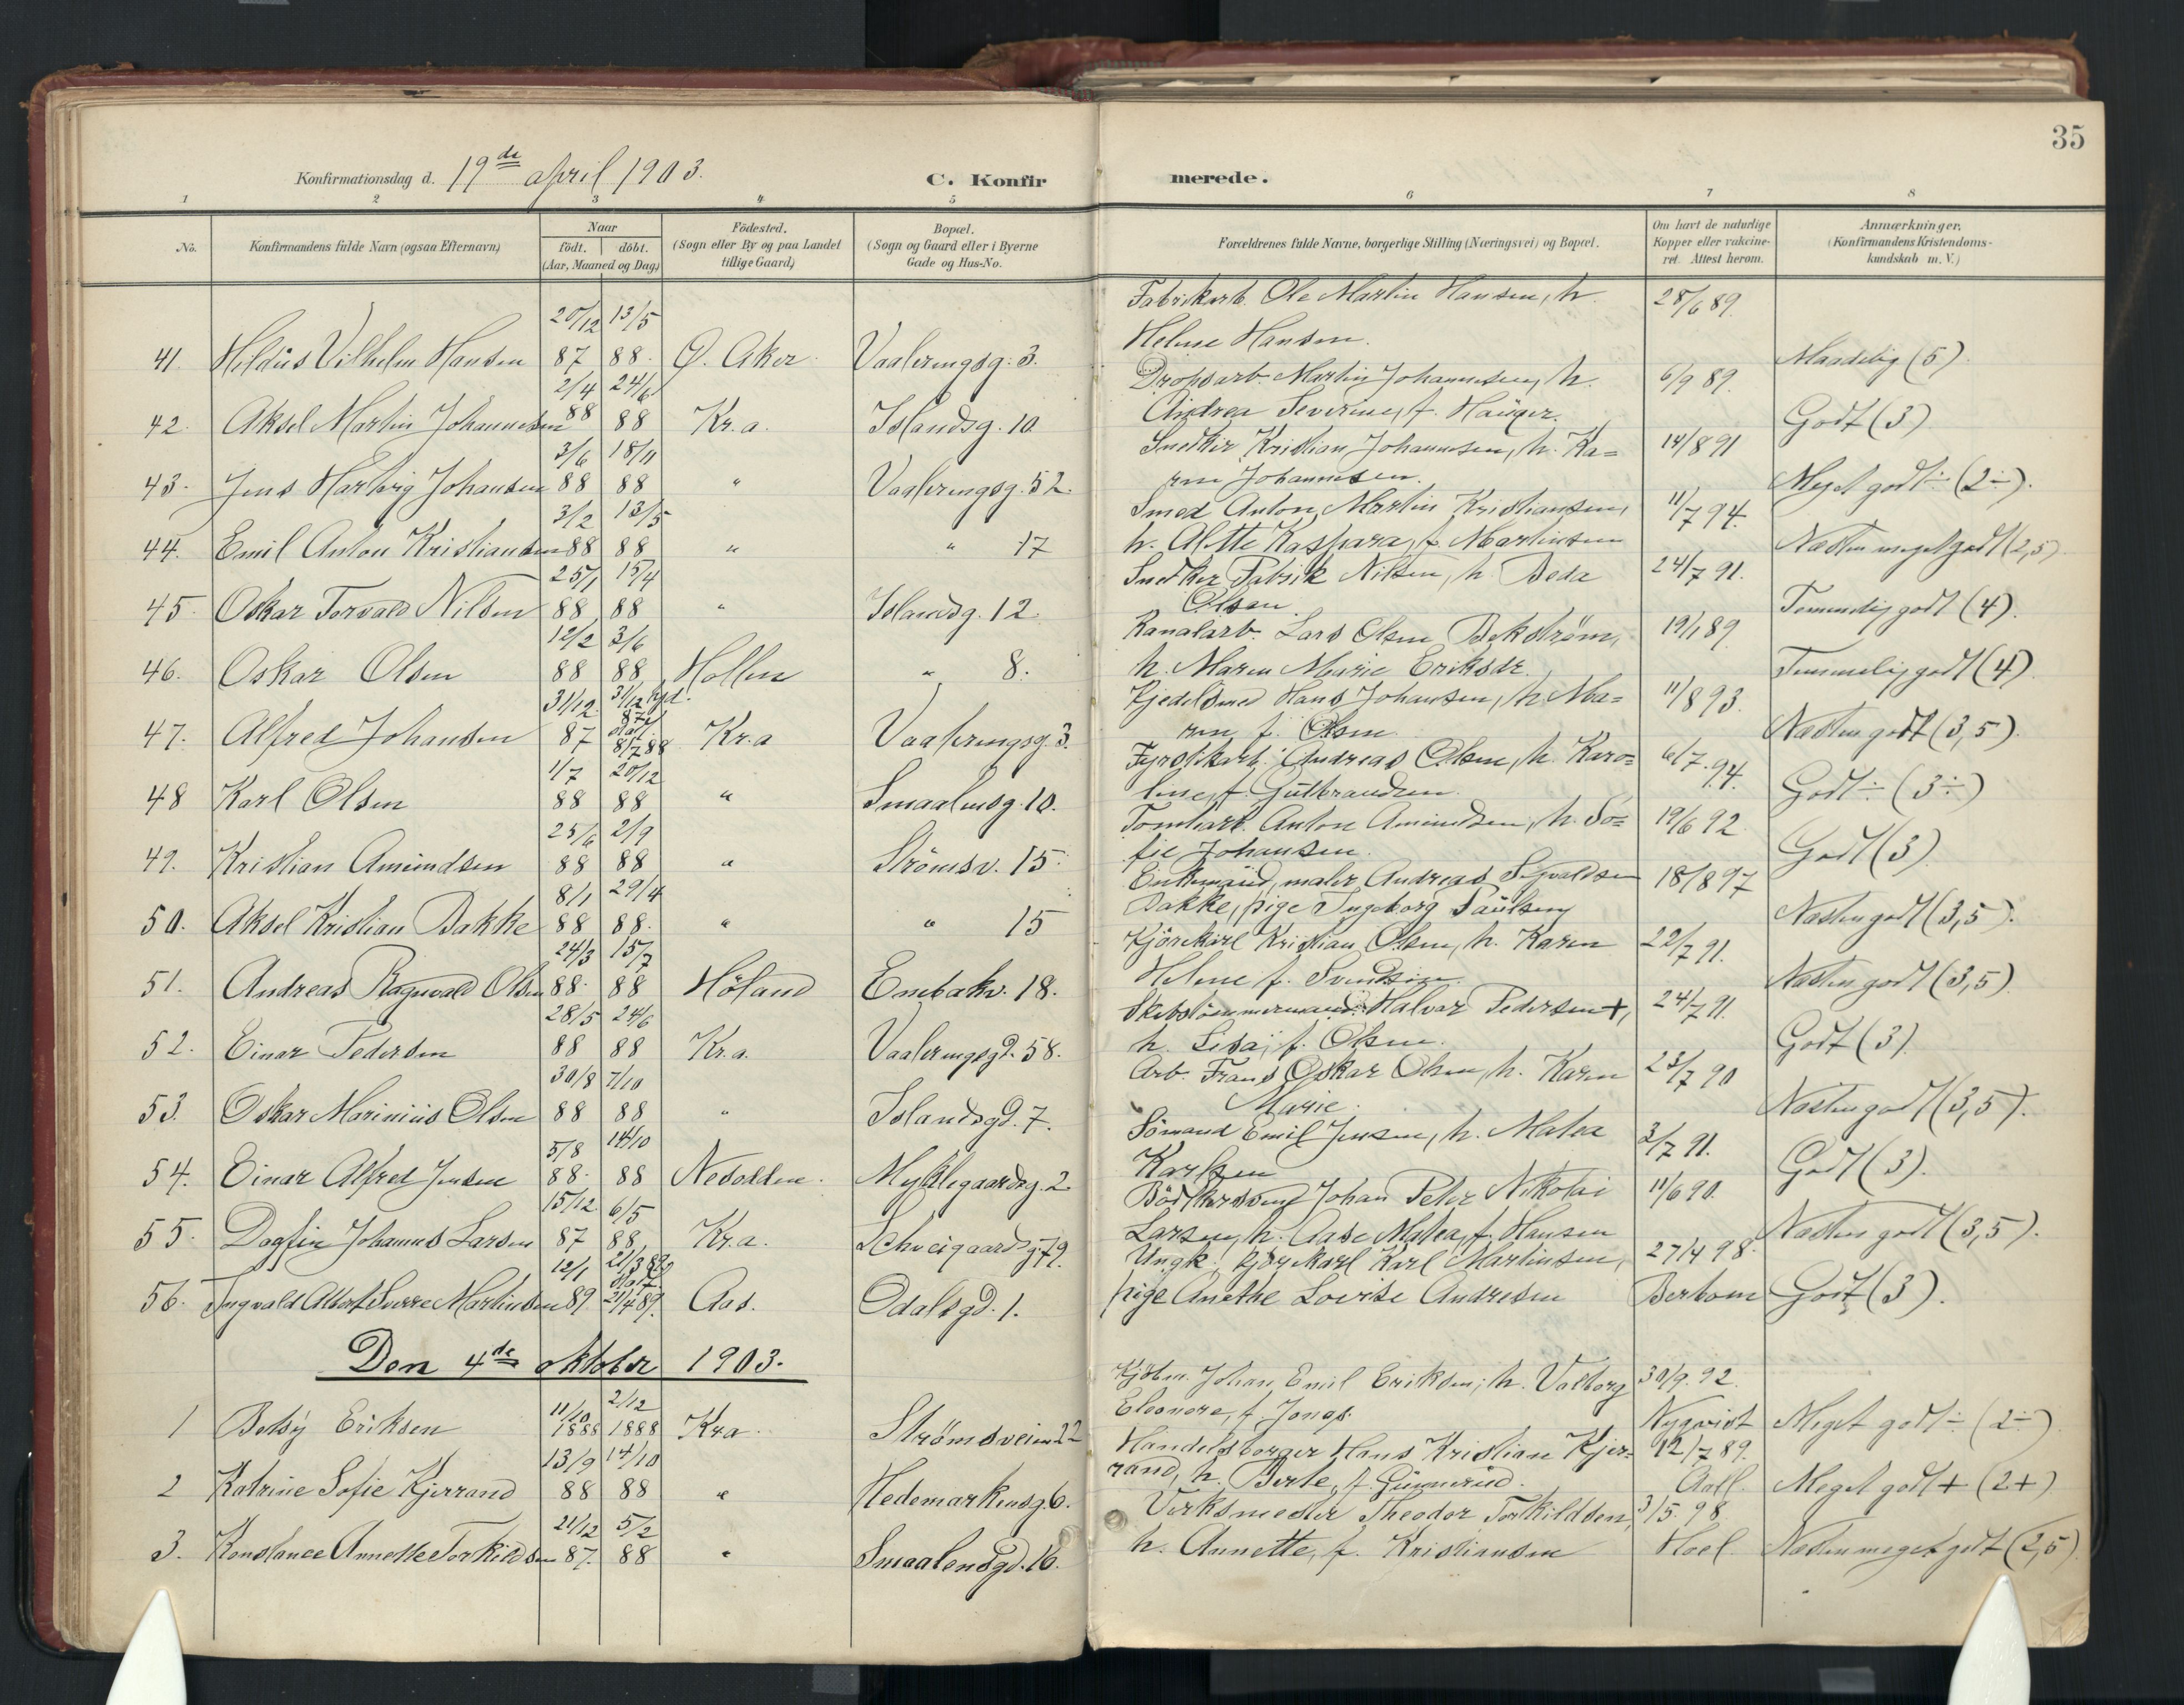 35
Konfirmationsdag d. 19de april 1903.
C. Konfirmerede.
1 2 3 4 5 6 7 8
No.
Konfirmandens fulde Navn (ogsaa Efternavn)
Naar
födt. döbt.
(Aar, Maaned og Dag)
Födested.
(Sogn eller By og paa Landet
tillige Gaard)
Bopæl.
(Sogn og Gaard eller i Byerne
Gade og Hus-No.
Forældrenes fulde Navne, borgerlige Stilling (Næringsvei) og Bopæl.
Om havt de naturlige
Kopper eller vakcine-
ret. Attest herom.
Anmærkninger.
(Konfirmandens Kristendoms-
kundskab m. V.)
20/12 13/5 Fabrikarb. Ole Martin Hansen, h. 28/6 89.
41. Vilhelm Hansen 87 88. Ø. Aker Vaalerengsg. 3. Helene Hansen. Maadelig (5)
2/4 24/6 Dropsarb. Martin Johannesen, h. 6/9 89.
42. Aksel Martin Johannesen 88 88 Kr.a. Islandsg. 10. Andrea Severine, f. Hauger. Godt (3)
3/6 18/11 Snedker Kristian Johannesen, h. Ka= 14/8 91
43. Jens Hartvig Johansen 88 88 " Vaalerengsg. 52. ren Johannesen. Meget godt ÷ (2÷).
3/2 13/5 Smed Anton Martin Kristiansen, 11/7 94.
44. Emil Anton Kristiansen 88 88 " " 17 h. Alette Kaspara, f. Martinsen Næsten meget godt (2,5)
25/1 15/4 Snedker Patrik Nilsen, h. Beda 24/7 91.
45. Oskar Torvald Nilsen 88 88 " Islandsg. 12. Olsen. Temmelig godt (4).
12/2 3/6 Kanalarb. Lars Olsen Bekström, 19/1 89
46. Oskar Olsen 88 88 Hollen " 8. h. Maren Marie Eriksdr. Temmelig godt (4)
31/12 31/12 hjd. Kjedelsmed Hans Johansen, h. Ma= 11/8 93.
47. Alfred Johansen 87 87 stadf. 8/7 88 Kr.a Vaalerengsg. 3. ren, f. Olsen. Næsten godt (3,5).
1/7 20/12 Fyrstikarb. Andreas Olsen, h. Karo= 6/7. 94.
48 Karl Olsen 88 88 " Smaalensg. 10. line, f. Gulbrandsen. Godt ÷ (3÷)
25/6 2/9 Tomtearb. Anton Amundsen, h. So= 19/6 92
49. Kristian Amundsen 88 88 " Strömsv. 15. fie Johansen. Godt (3)
8/1 29/4 Enkemand, maler Andreas Sigvaldsen 18/8 97
50. Aksel Kristian Bakke 88 88. " " 15 Bakke, pige Ingeborg Paulsen Næsten godt (3,5).
24/3 15/7 Kjörekarl Kristian Olsen, h. Karen 22/7 91.
51. Andreas Ragnvald Olsen 88. 88 Höland Enebakv. 18. Helene f. Svendsen. Næsten godt (3,5)
28/5 24/6 Skibstömmermand Halvor Pedersen +, 24/7 91.
52. Einar Pedersen 88 88 Kr.a. Vaalerengsgd. 58. h. Lisa, f. Olsen. Godt (3).
30/8 7/10 Arb. Frans Oskar Olsen, h. Karen 23/7 90
53. Oskar Marinius Olsen 88 88 " Islandsgd. 7. Marie. Næsten godt (3,5).
5/8 14/10 Sömand Emil Jensen, h. Matea 3/7 91.
54. Einar Alfred Jensen 88. 88 Nesodden. Myklegaardsg. 2 Karlsen Godt (3).
15/12 6/5 Bödkersvend Johan Peter Nikolai 11/6 90.
55. Dagfin Johannes Larsen 87 88 Kr.a. Schweigaardsg. 79. Larsen, h. Aase Matea, f. Hansen Næsten godt (3,5).
12/1 21/3 89 Ungk. kjörekarl Karl Martinsen, 27/4 98.
56. Ingvald Albert Sverre Martinsen 89 stadf. 21/4 89. Aas. Odalsgd. 1. pige Anethe Lovise Andresen Berbom Godt (3).
Den 4de oktober 1903.
11/10 2/12 Kjöbm. Johan Emil Eriksen, h. Valborg 30/9. 92.
1 Betsy Eriksen 1888 1888 Kra. Strömsveien 22 Eleonore, f. Jonas. Nyqvist Meget godt ÷ (2÷)
13/9 14/10 Handelsborger Hans Kristian Kjer= 12/7 89.
2 Katrine Sofie Kjerrand 88 88 " Hedemarkensg. 6. rand, h. Berte, f. Gunnerud. Aall. Meget godt + (2+)
21/12 5/2 Verksmester Theodor Torkildsen, 3/5. 98
3. Konstance Annette Torkildsen 87. 88 " Smaalensgd. 16. h. Annette, f. Kristiansen Hoel. Næsten meget godt (2,5)